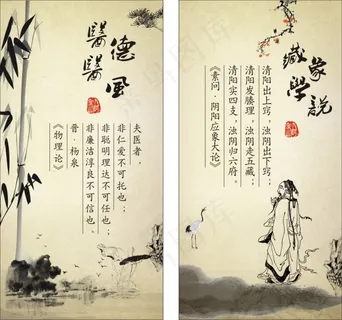 醫德
醫風
夫医者，
非仁爱不可托也；
非聪明理达不可任也；
非廉洁淳良不可信也。
晋·杨泉
《物理论》
藏象學說
清阳出上窍，浊阴出下窍；
清阳发腠理，浊阴走五藏；
清阳实四支，浊阴归六府。
《素问·阴阳应象大论》